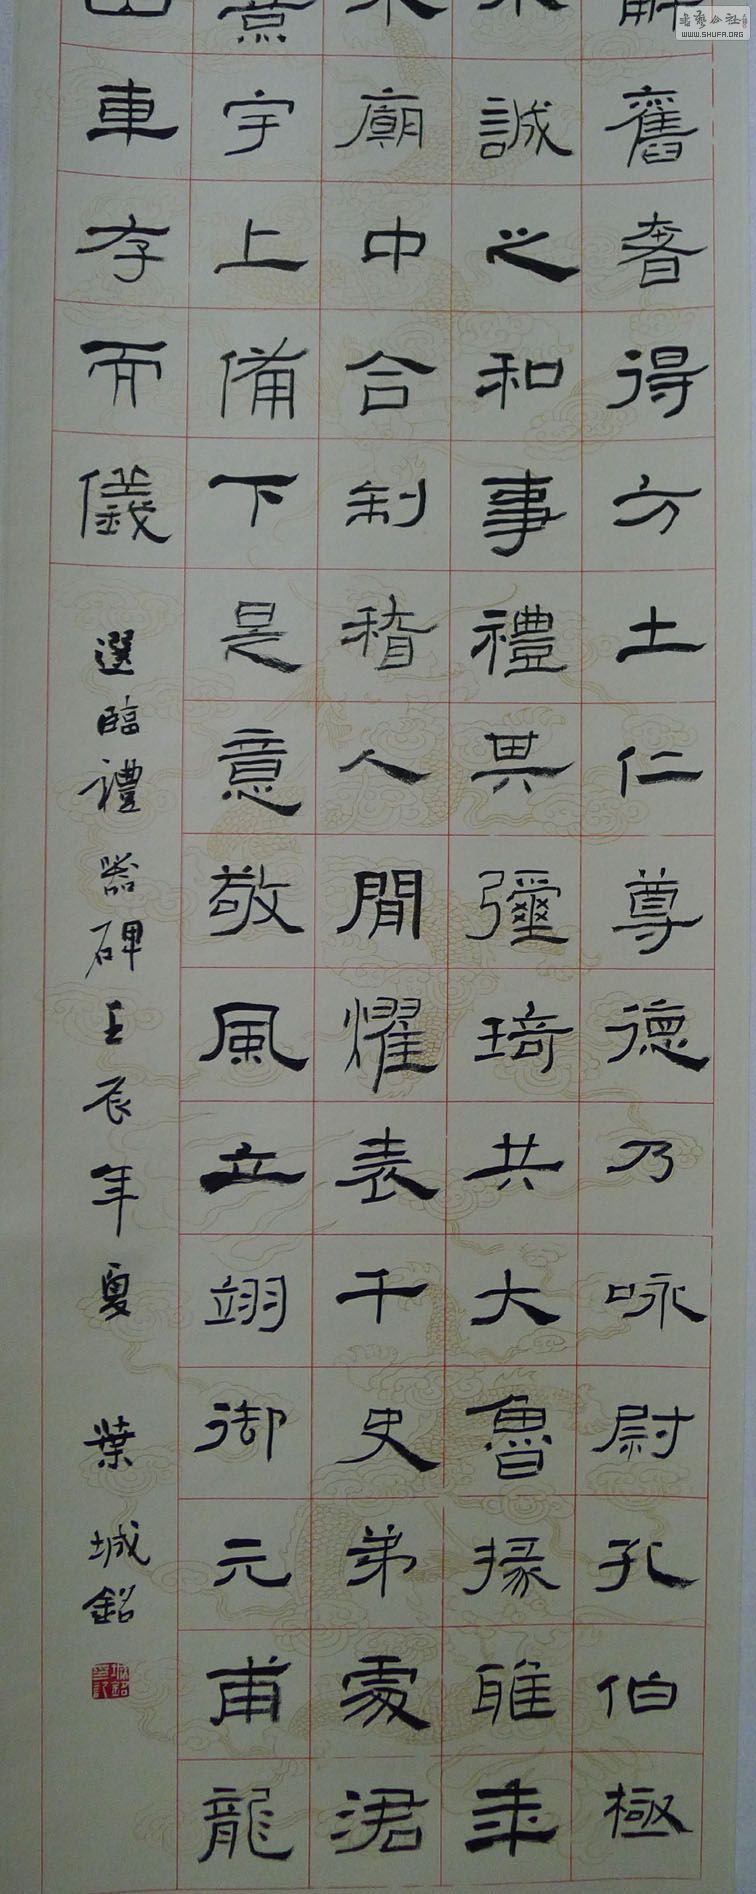 書藝公社
WWW.SHUFA.ORG
解舊奢得方土仁尊德乃咏尉孔伯極
誠之和事禮具彌琦共大魯掾
廟中合制稽人間燿表千史弟處涒
意宇上備下是意敬風立翊御元甫龍
山車存而儀
選臨禮器碑壬辰年夏 葉城銘